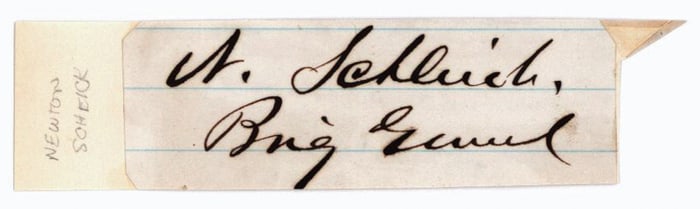 NEWTON
SCHEICK
N. Schleich.
Brig General